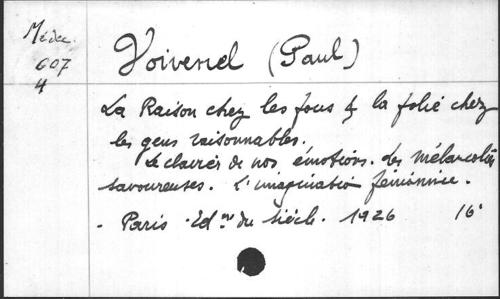 Médec.
607
4
Voivenel (Paul)
La Raison chez les fous & la folie chez
les gens raisonnables.
Le clavier de nos émotions. Les mélancolies
savoureuses. L'imagination féminine.
- Paris. Ed. ons du siècle. 1926 16°